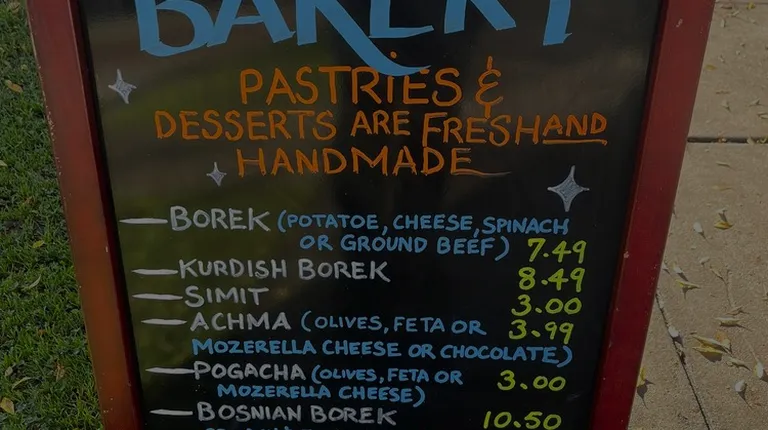 BAKERY
PASTRIES &
DESSERTS ARE FRESHAND
HANDMADE
BOREK (POTATOE, CHEESE, SPINACH
OR GROUND BEEF) 7.49
KURDISH BOREK 8.49
SIMIT 3.00
ACHMA (OLIVES, FETA OR 3.99
MOZERELLA CHEESE OR CHOCOLATE)
POGACHA (OLIVES, FETA OR 3.00
MOZERELLA CHEESE)
BOSNIAN BOREK 10.50